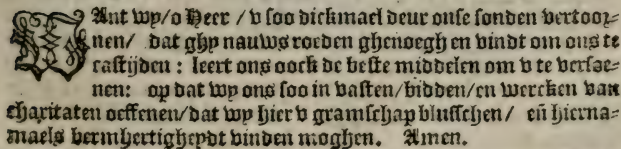 WAnt wy/o Heer / v soo dickmael deur onse sonden vertoor-
nen/ dat ghy nauws roeden ghenoegh en vindt om ons te
castijden : leert ons oock de beste middelen om v te versoe-
nen: op dat wy ons soo in vasten/bidden/en wercken van
charitaten oeffenen/dat wy hier v gramschap blusschen/ eñ hierna-
maels bermhertigheydt vinden moghen. Amen.